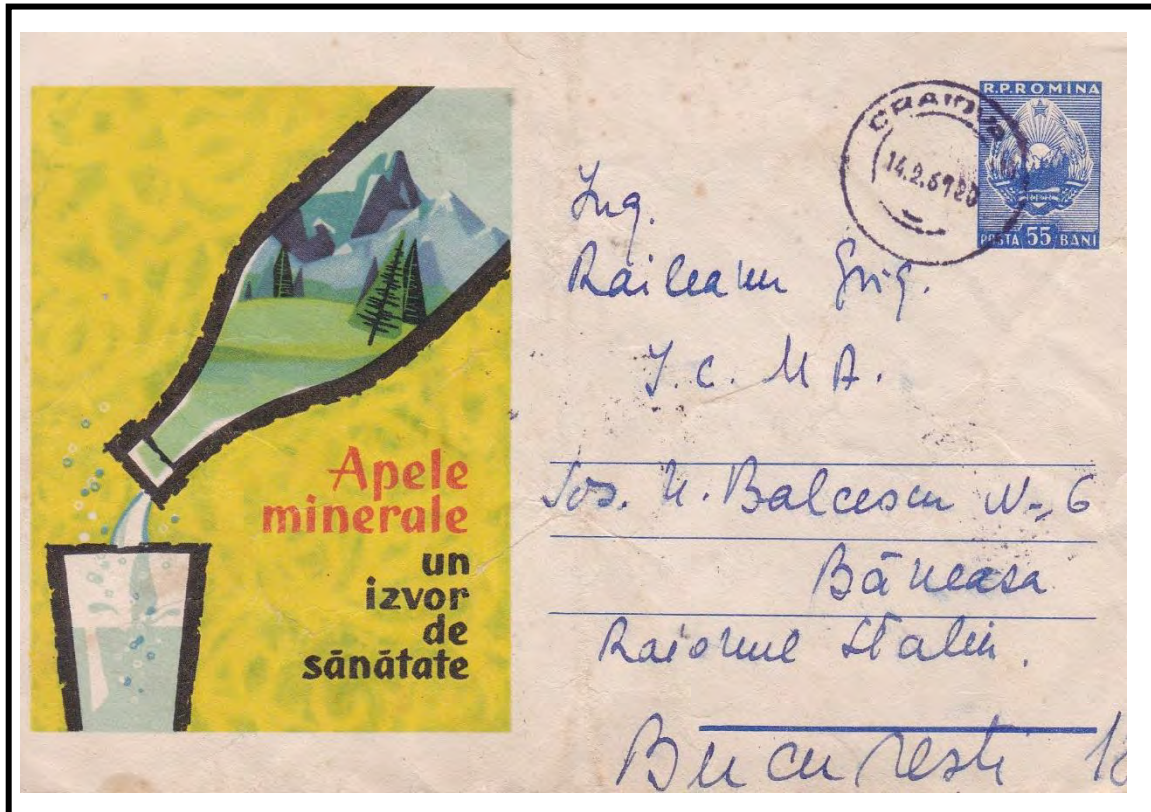 Apele
minerale
un
izvor
de
sănătate
CRAIOVA
14.2.61 20
R.P.ROMINA
POSTA 55 BANI
Ing.
Raileanu Grig.
I. C. M A.
Sos. N. Balcescu No 6
Băneasa
Raionul Stalin.
Bucuresti 18